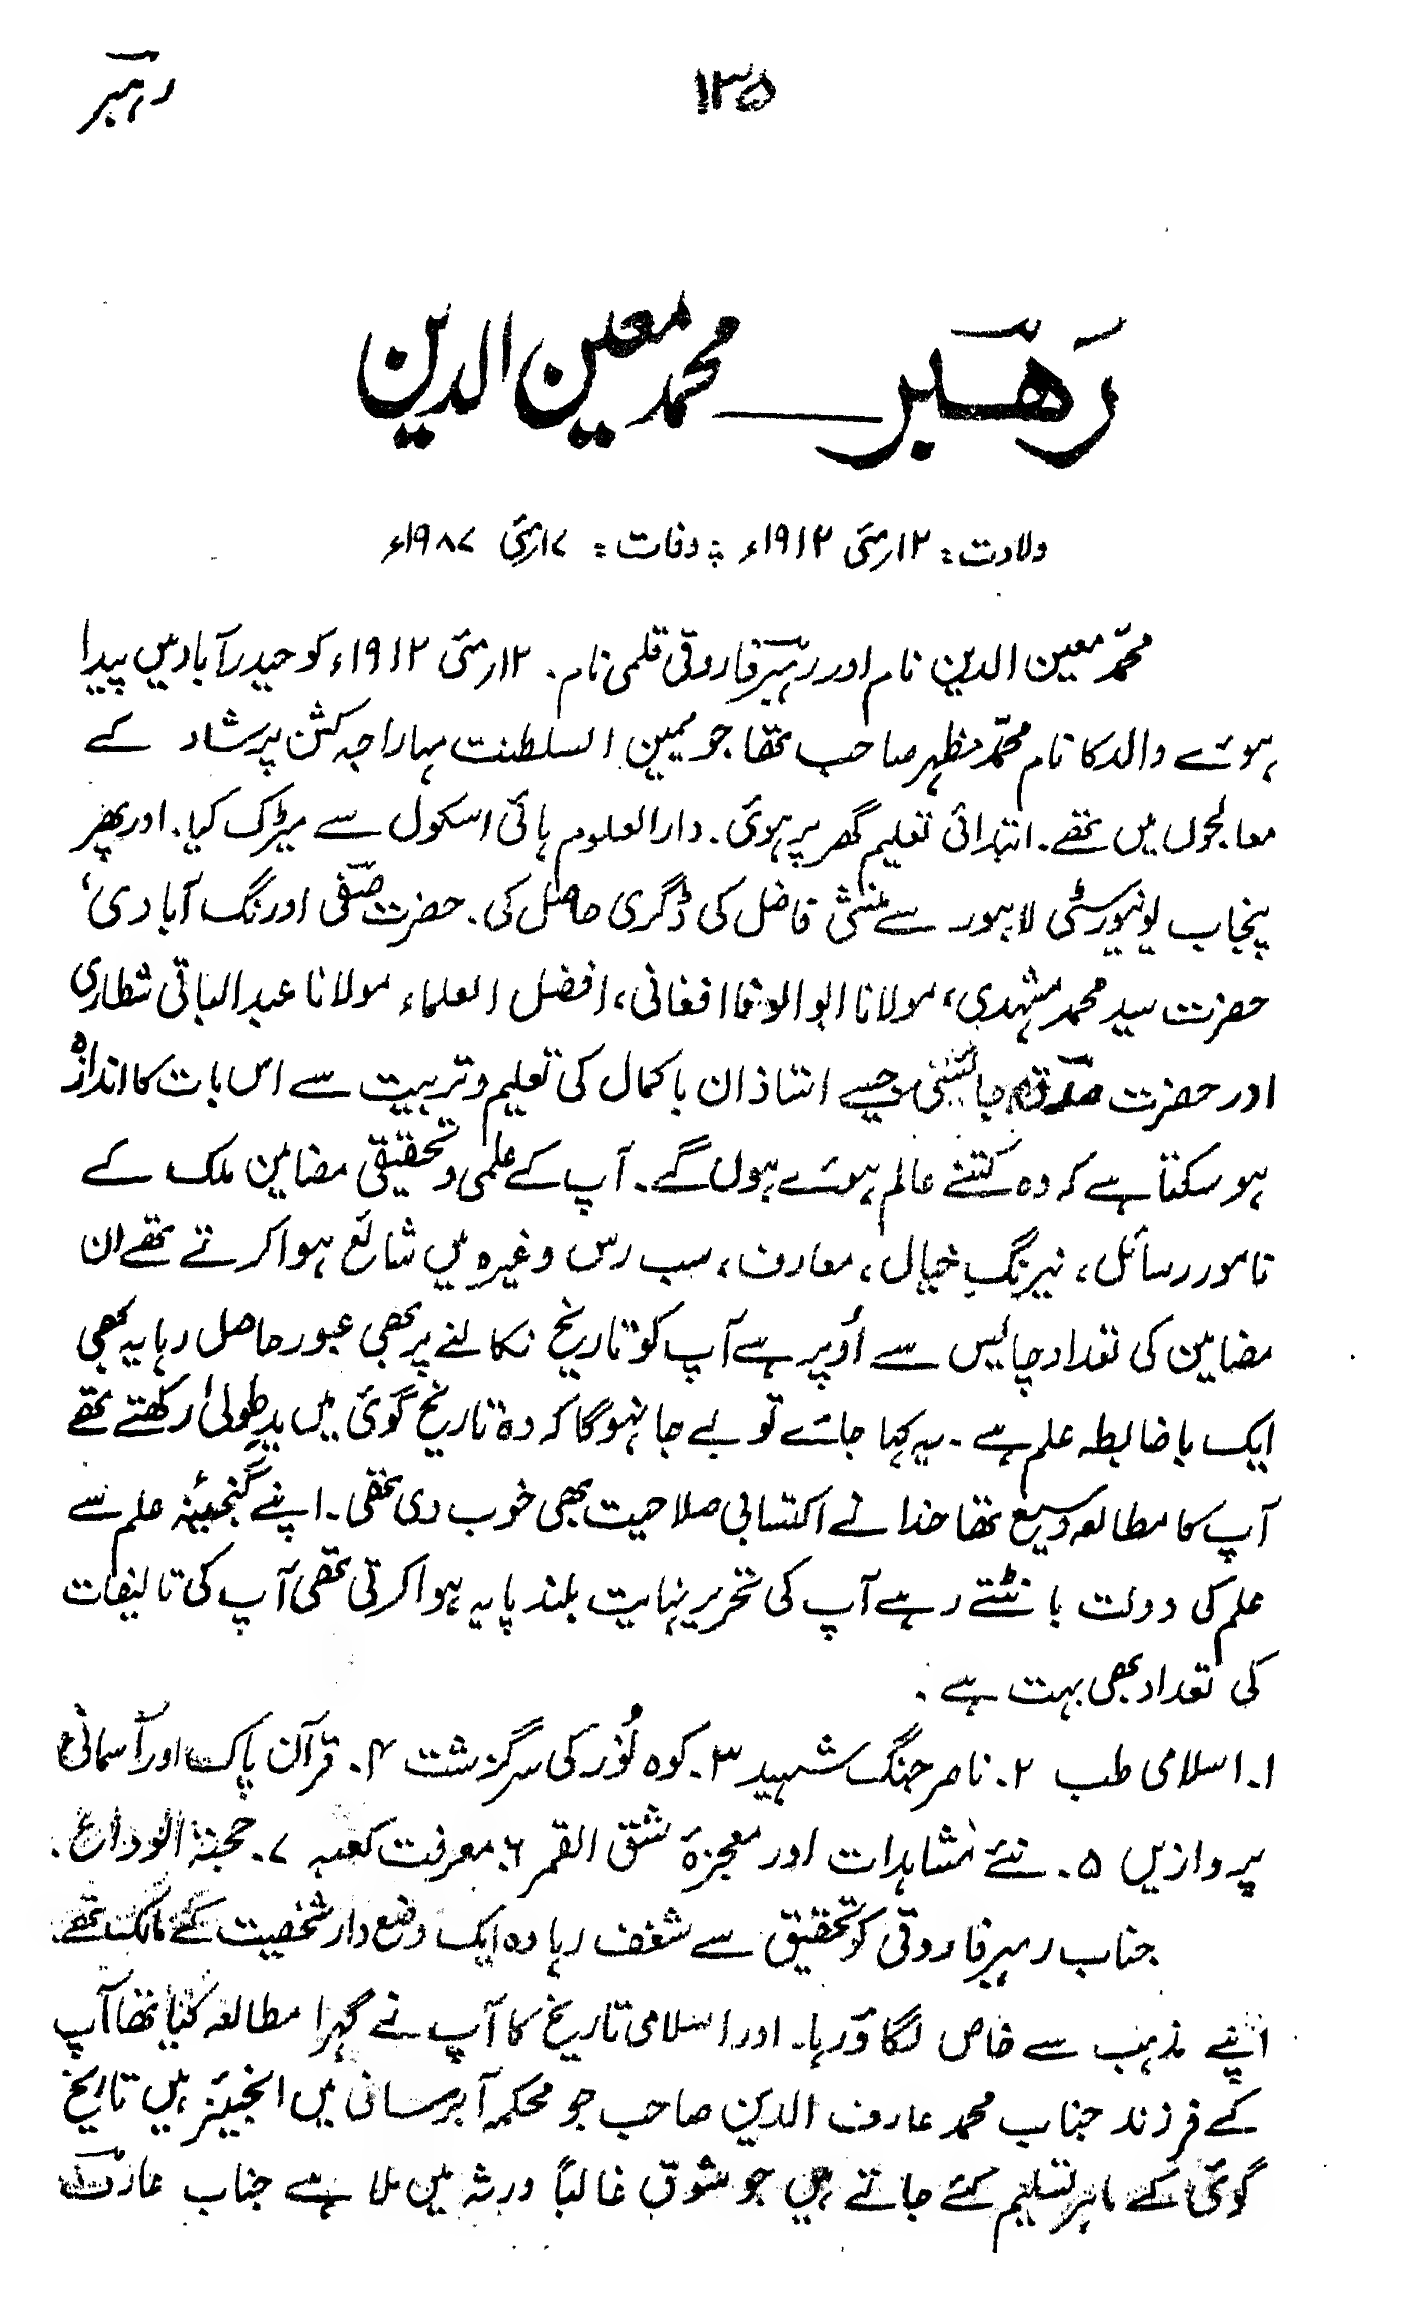 رہبر
۱۳۵
رَھـبَر — محمد معین الدین
ولادت: ۱۲؍مئی ۱۹۱۲ء ؛ وفات: ۷؍مئی ۱۹۸۷ء
محمّد معین الدین نام اور رہبر فاروقی قلمی نام۔ ۱۲؍مئی ۱۹۱۲ء کو حیدرآباد میں پیدا
ہوئے والد کا نام محمّد مظہر صاحب تھا جو یمین السلطنت مہاراجہ کشن پرشاد کے
معالجوں میں تھے۔ ابتدائی تعلیم گھر پر ہوئی۔ دارالعلوم ہائی اسکول سے میٹرک کیا۔ اور پھر
پنجاب یونیورسٹی لاہور سے منشی فاضل کی ڈگری حاصل کی۔ حضرت صفی اورنگ آبادی،
حضرت سید محمد مشہدی، مولانا ابوالوفا افغانی، افضل العلماء مولانا عبدالباقی شطاری
اور حضرت صدق جائسی جیسے استاذان باکمال کی تعلیم و تربیت سے اس بات کا اندازہ
ہو سکتا ہے کہ وہ کتنے عالم ہوئے ہوں گے۔ آپ کے علمی و تحقیقی مضامین ملک کے
نامور رسائل، نیرنگِ خیال، معارف، سب رس وغیرہ میں شائع ہوا کرتے تھے ان
مضامین کی تعداد چالیس سے اُوپر ہے آپ کو تاریخ نکالنے پر بھی عبور حاصل رہا یہ بھی
ایک باضابطہ علم ہے۔ یہ کہا جائے تو بے جا نہوگا کہ وہ تاریخ گوئی میں یدِ طولیٰ رکھتے تھے
آپ کا مطالعہ وسیع تھا خدا نے اکتسابی صلاحیت بھی خوب دی تھی۔ اپنے گنجینۂ علم سے
علم کی دولت بانٹتے رہے آپ کی تحریر نہایت بلند پایہ ہوا کرتی تھی آپ کی تالیفات
کی تعداد بھی بہت ہے۔
۱۔ اسلامی طب ۲۔ ناصر جنگ شہید ۳۔ کوہ نُور کی سرگزشت ۴۔ قرآن پاک اور آسمانی
پروازیں ۵۔ نئے مشاہدات اور معجزۂ شق القمر ۶۔ معرفت کعبہ ۷۔ حجۃ الوداع۔
جناب رہبر فاروقی کو تحقیق سے شغف رہا وہ ایک وضع دار شخصیت کے مالک تھے
اپنے مذہب سے خاص لگاؤ رہا۔ اور اسلامی تاریخ کا آپ نے گہرا مطالعہ کیا تھا آپ
کے فرزند جناب محمد عارف الدین صاحب جو محکمہ آبرسانی میں انجینیر ہیں تاریخ
گوئی کے ماہر تسلیم کئے جاتے ہیں جو شوق غالباً ورثہ میں ملا ہے جناب عارف